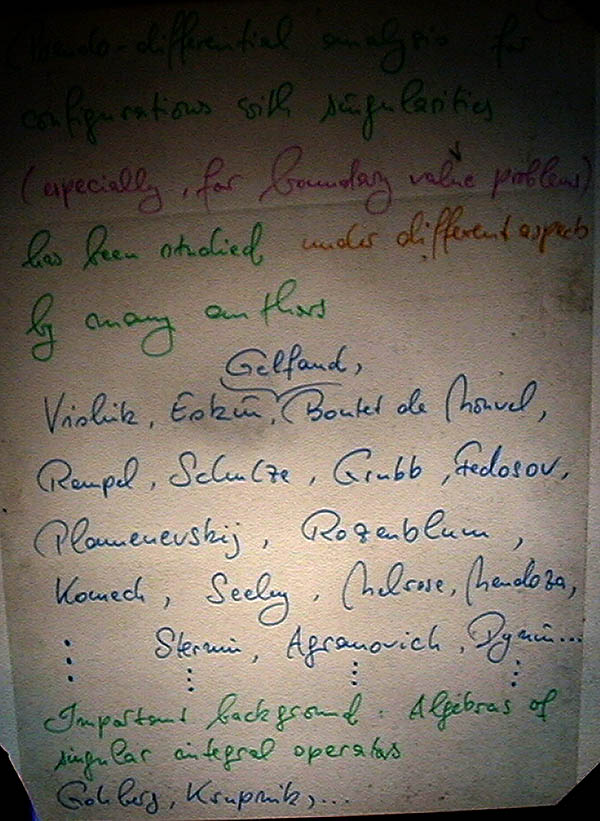 Pseudo-differential analysis for
configurations with singularities
(especially, for boundary value problems)
has been studied under different aspects
by many authors
Gelfand,
Vishik, Eskin, Boutet de Monvel,
Rempel, Schulze, Grubb, Fedosov,
Plamenevskij, Rozenblum,
Komech, Seeley, Melrose, Mendoza,
Sternin, Agranovich, Dynin...
Important background: Algebras of
singular integral operators
Gohberg, Krupnik,...